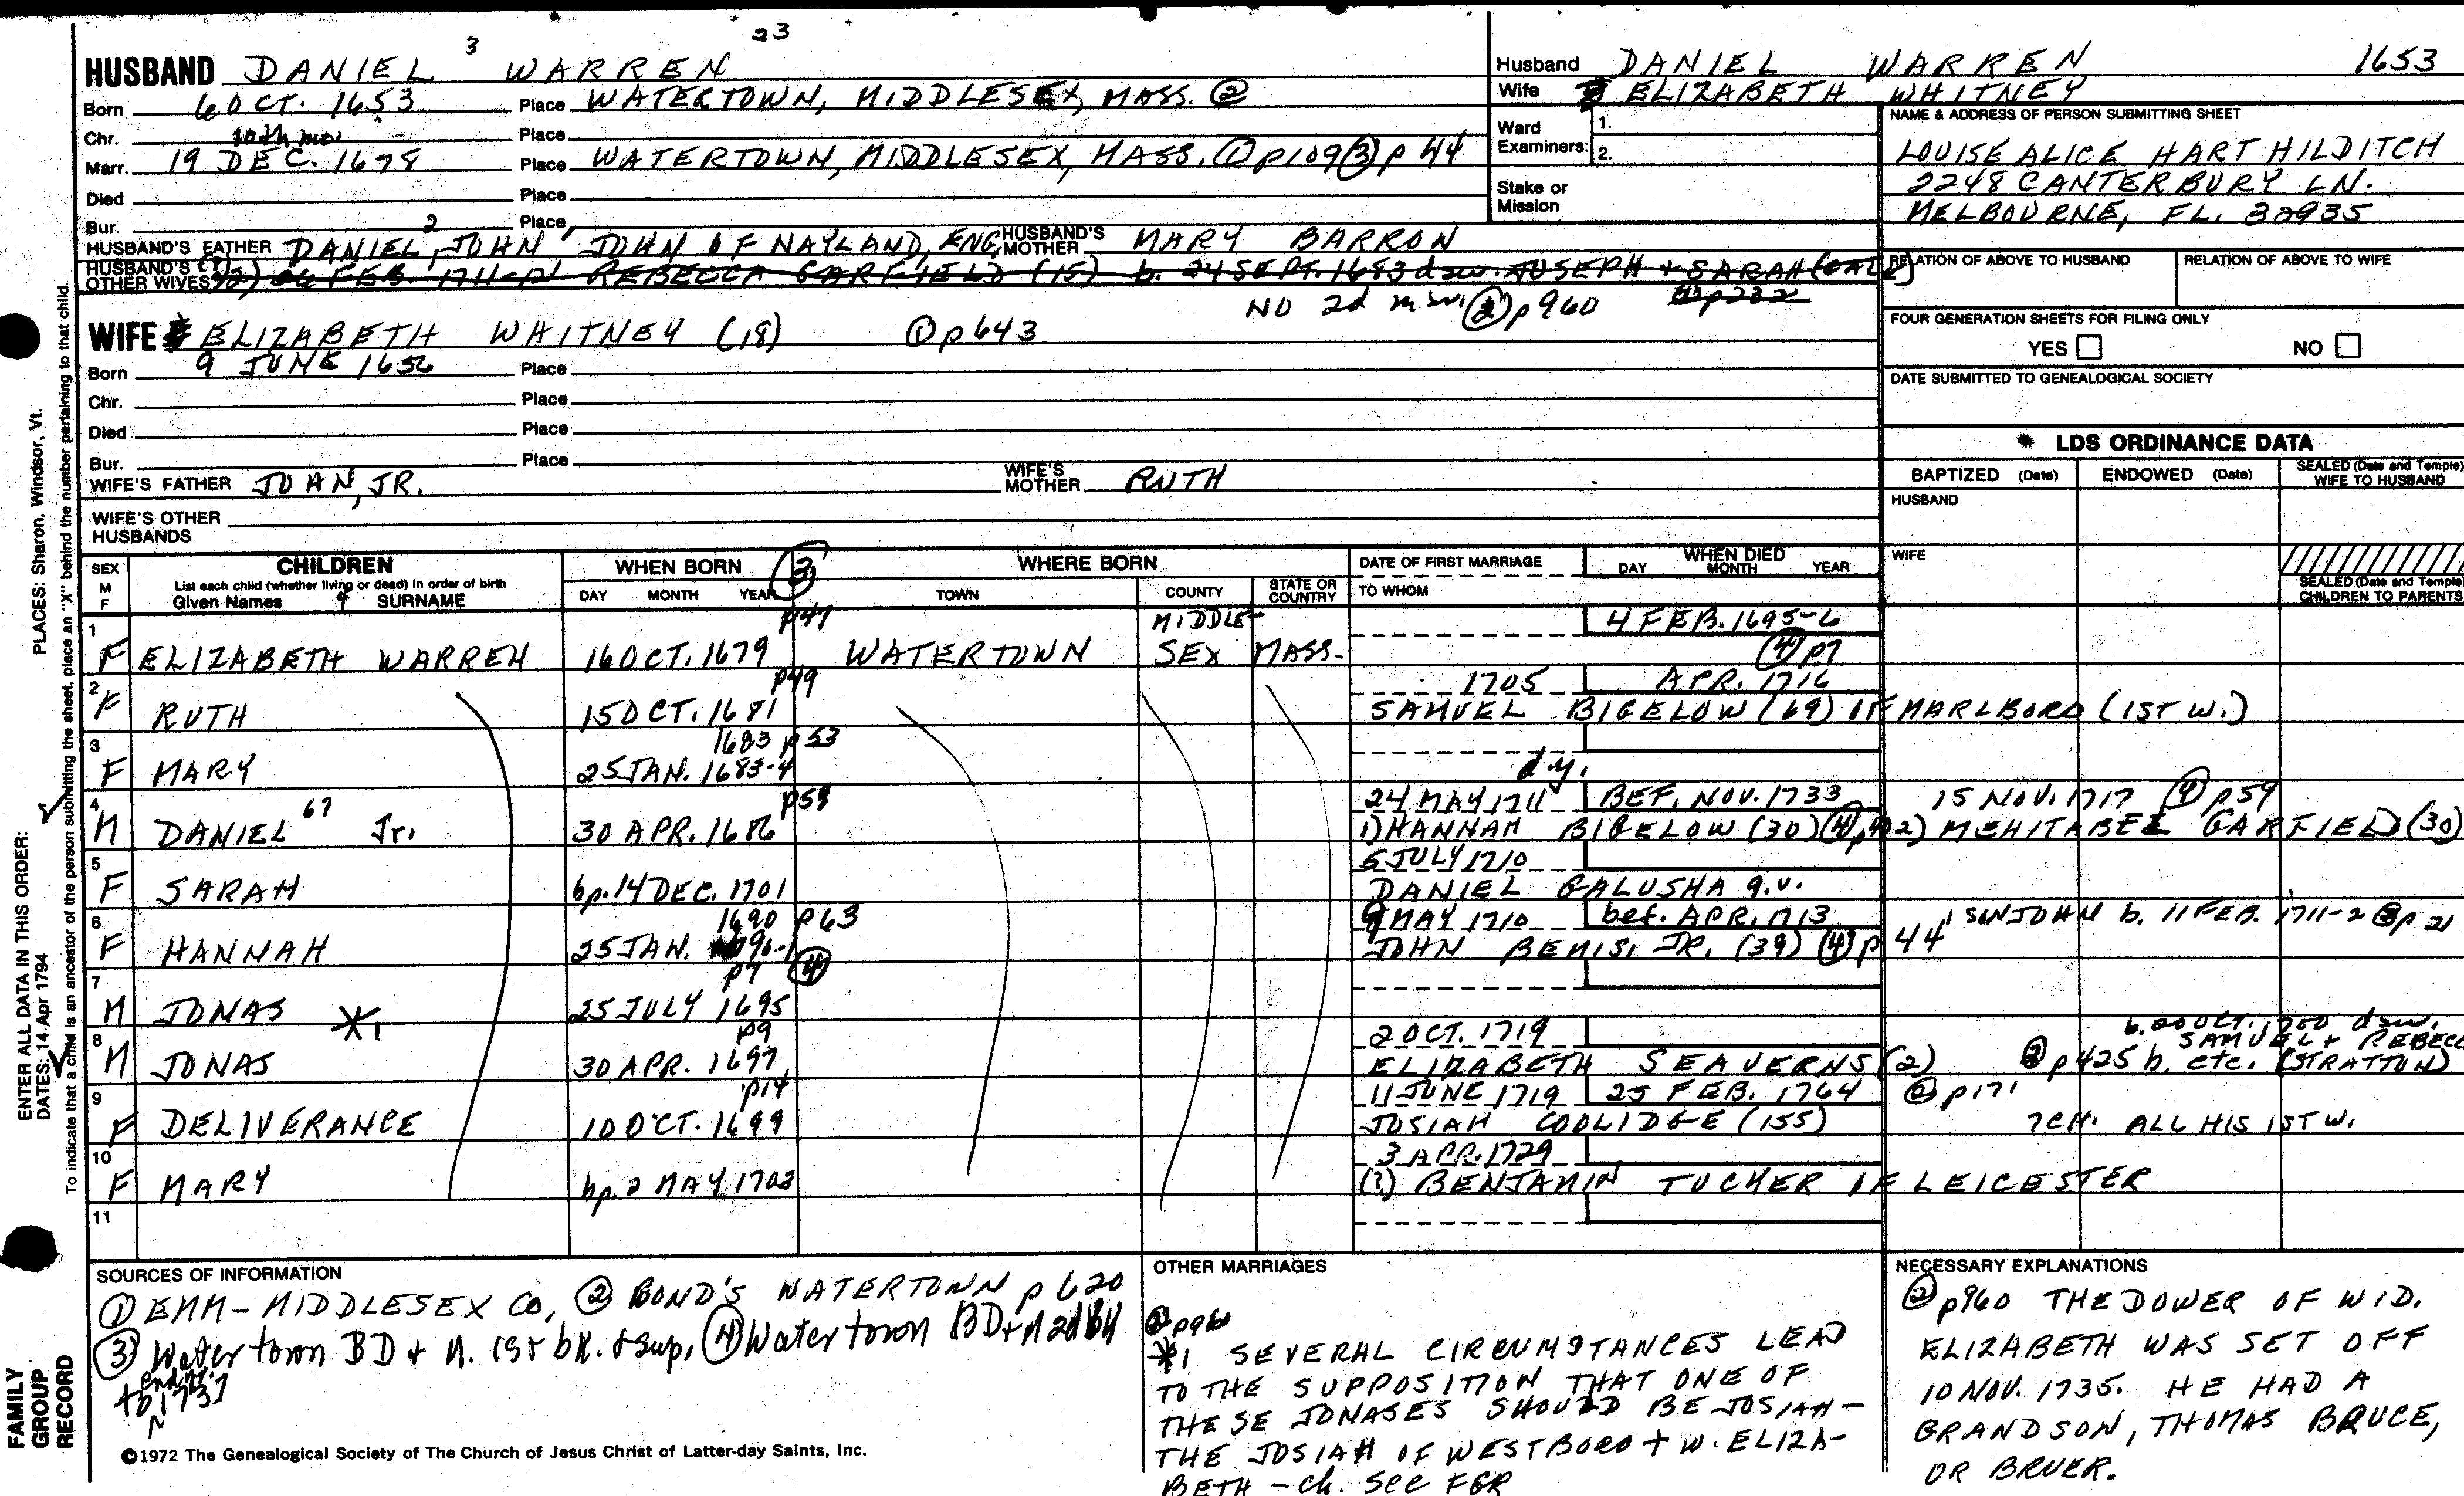 3 23
HUSBAND DANIEL WARREN
Born 6 OCT. 1653 Place WATERTOWN, MIDDLESEX, MASS. ②
Chr. 10th mo. Place
Marr. 19 DEC. 1678 Place WATERTOWN, MIDDLESEX, MASS. ① p109 ③ p 44
Died Place
Bur. Place
HUSBAND'S FATHER DANIEL, JOHN 2 JOHN OF NAYLAND, ENG. HUSBAND'S MOTHER MARY BARRON
HUSBAND'S (?) OTHER WIVES (2) 24 FEB. 1711-12 REBECCA GARFIELD (15) b. 24 SEPT. 1683 d sw. JOSEPH + SARAH (GALE)
NO 2d m sw ② p960 p232
WIFE ELIZABETH WHITNEY (18) ① p643
Born 9 JUNE 1656 Place
Chr. Place
Died Place
Bur. Place
WIFE'S FATHER JOHN, JR. WIFE'S MOTHER RUTH
WIFE'S OTHER HUSBANDS
Husband DANIEL WARREN 1653
Wife ELIZABETH WHITNEY
Ward Examiners: 1.
2.
Stake or Mission
NAME & ADDRESS OF PERSON SUBMITTING SHEET
LOUISE ALICE HART HILDITCH
2248 CANTERBURY LN.
MELBOURNE, FL. 32935
RELATION OF ABOVE TO HUSBAND RELATION OF ABOVE TO WIFE
FOUR GENERATION SHEETS FOR FILING ONLY
YES NO
DATE SUBMITTED TO GENEALOGICAL SOCIETY
* LDS ORDINANCE DATA
BAPTIZED (Date) ENDOWED (Date) SEALED (Date and Temple) WIFE TO HUSBAND
HUSBAND
WIFE
SEALED (Date and Temple) CHILDREN TO PARENTS
SEX M F CHILDREN List each child (whether living or dead) in order of birth Given Names 4 SURNAME
WHEN BORN ③ DAY MONTH YEAR
WHERE BORN TOWN COUNTY STATE OR COUNTRY
DATE OF FIRST MARRIAGE TO WHOM
WHEN DIED DAY MONTH YEAR
1 p47 MIDDLE- 4 FEB. 1695-6
F ELIZABETH WARREN 16 OCT. 1679 WATERTOWN SEX MASS. ④ p7
2 p49 1705 APR. 1716
F RUTH 15 OCT. 1681 SAMUEL BIGELOW (69) OF MARLBORO (1ST W.)
3 1683 p53
F MARY 25 JAN. 1683-4 d.y.
4 p58 24 MAY 1711 BEF. NOV. 1733 15 NOV. 1717 ④ p59
M DANIEL 67 Jr. 30 APR. 1686 1) HANNAH BIGELOW (30) ④ 2) MEHITABEL GARFIELD (30)
5 5 JULY 1710
F SARAH bp. 14 DEC. 1701 DANIEL GALUSHA q.v.
6 1690 p63 9 MAY 1710 bef. APR. 1713 1 SON JOHN b. 11 FEB. 1711-2 ③ p 21
F HANNAH 25 JAN. 1690-1 JOHN BEMIS, JR. (39) ④ p 44
7 p7 ④
M JONAS *1 25 JULY 1695
8 p9 2 OCT. 1719 b. 20 OCT. 1700 d sw. SAMUEL + REBECC
M JONAS 30 APR. 1697 ELIZABETH SEAVERNS (2) ② p425 b. etc. (STRATTON)
9 p14 11 JUNE 1719 25 FEB. 1764 ② p171
F DELIVERANCE 10 OCT. 1699 JOSIAH COOLIDGE (155) 7 CH. ALL HIS 1ST W.
10 3 APR. 1729
F MARY bp. 2 MAY 1703 (3) BENJAMIN TUCKER OF LEICESTER
11
SOURCES OF INFORMATION
① EMM-MIDDLESEX CO, ② BOND'S WATERTOWN p 620
③ Watertown BD + M. 1st bk. + sup, ④ Watertown BD + M 2d Bk
ending
to 1737
©1972 The Genealogical Society of The Church of Jesus Christ of Latter-day Saints, Inc.
OTHER MARRIAGES
② p960
*1 SEVERAL CIRCUMSTANCES LEAD
TO THE SUPPOSITION THAT ONE OF
THESE JONASES SHOULD BE JOSIAH-
THE JOSIAH OF WESTBORO + W. ELIZA-
BETH - ch. see FGR
NECESSARY EXPLANATIONS
② p960 THE DOWER OF WID.
ELIZABETH WAS SET OFF
10 NOV. 1735. HE HAD A
GRANDSON, THOMAS BRUCE,
OR BRUER.
ENTER ALL DATA IN THIS ORDER:
DATES: 14 Apr 1794 PLACES: Sharon, Windsor, Vt.
To indicate that a child is an ancestor of the person submitting the sheet, place an "X" behind the number pertaining to that child.
FAMILY
GROUP
RECORD